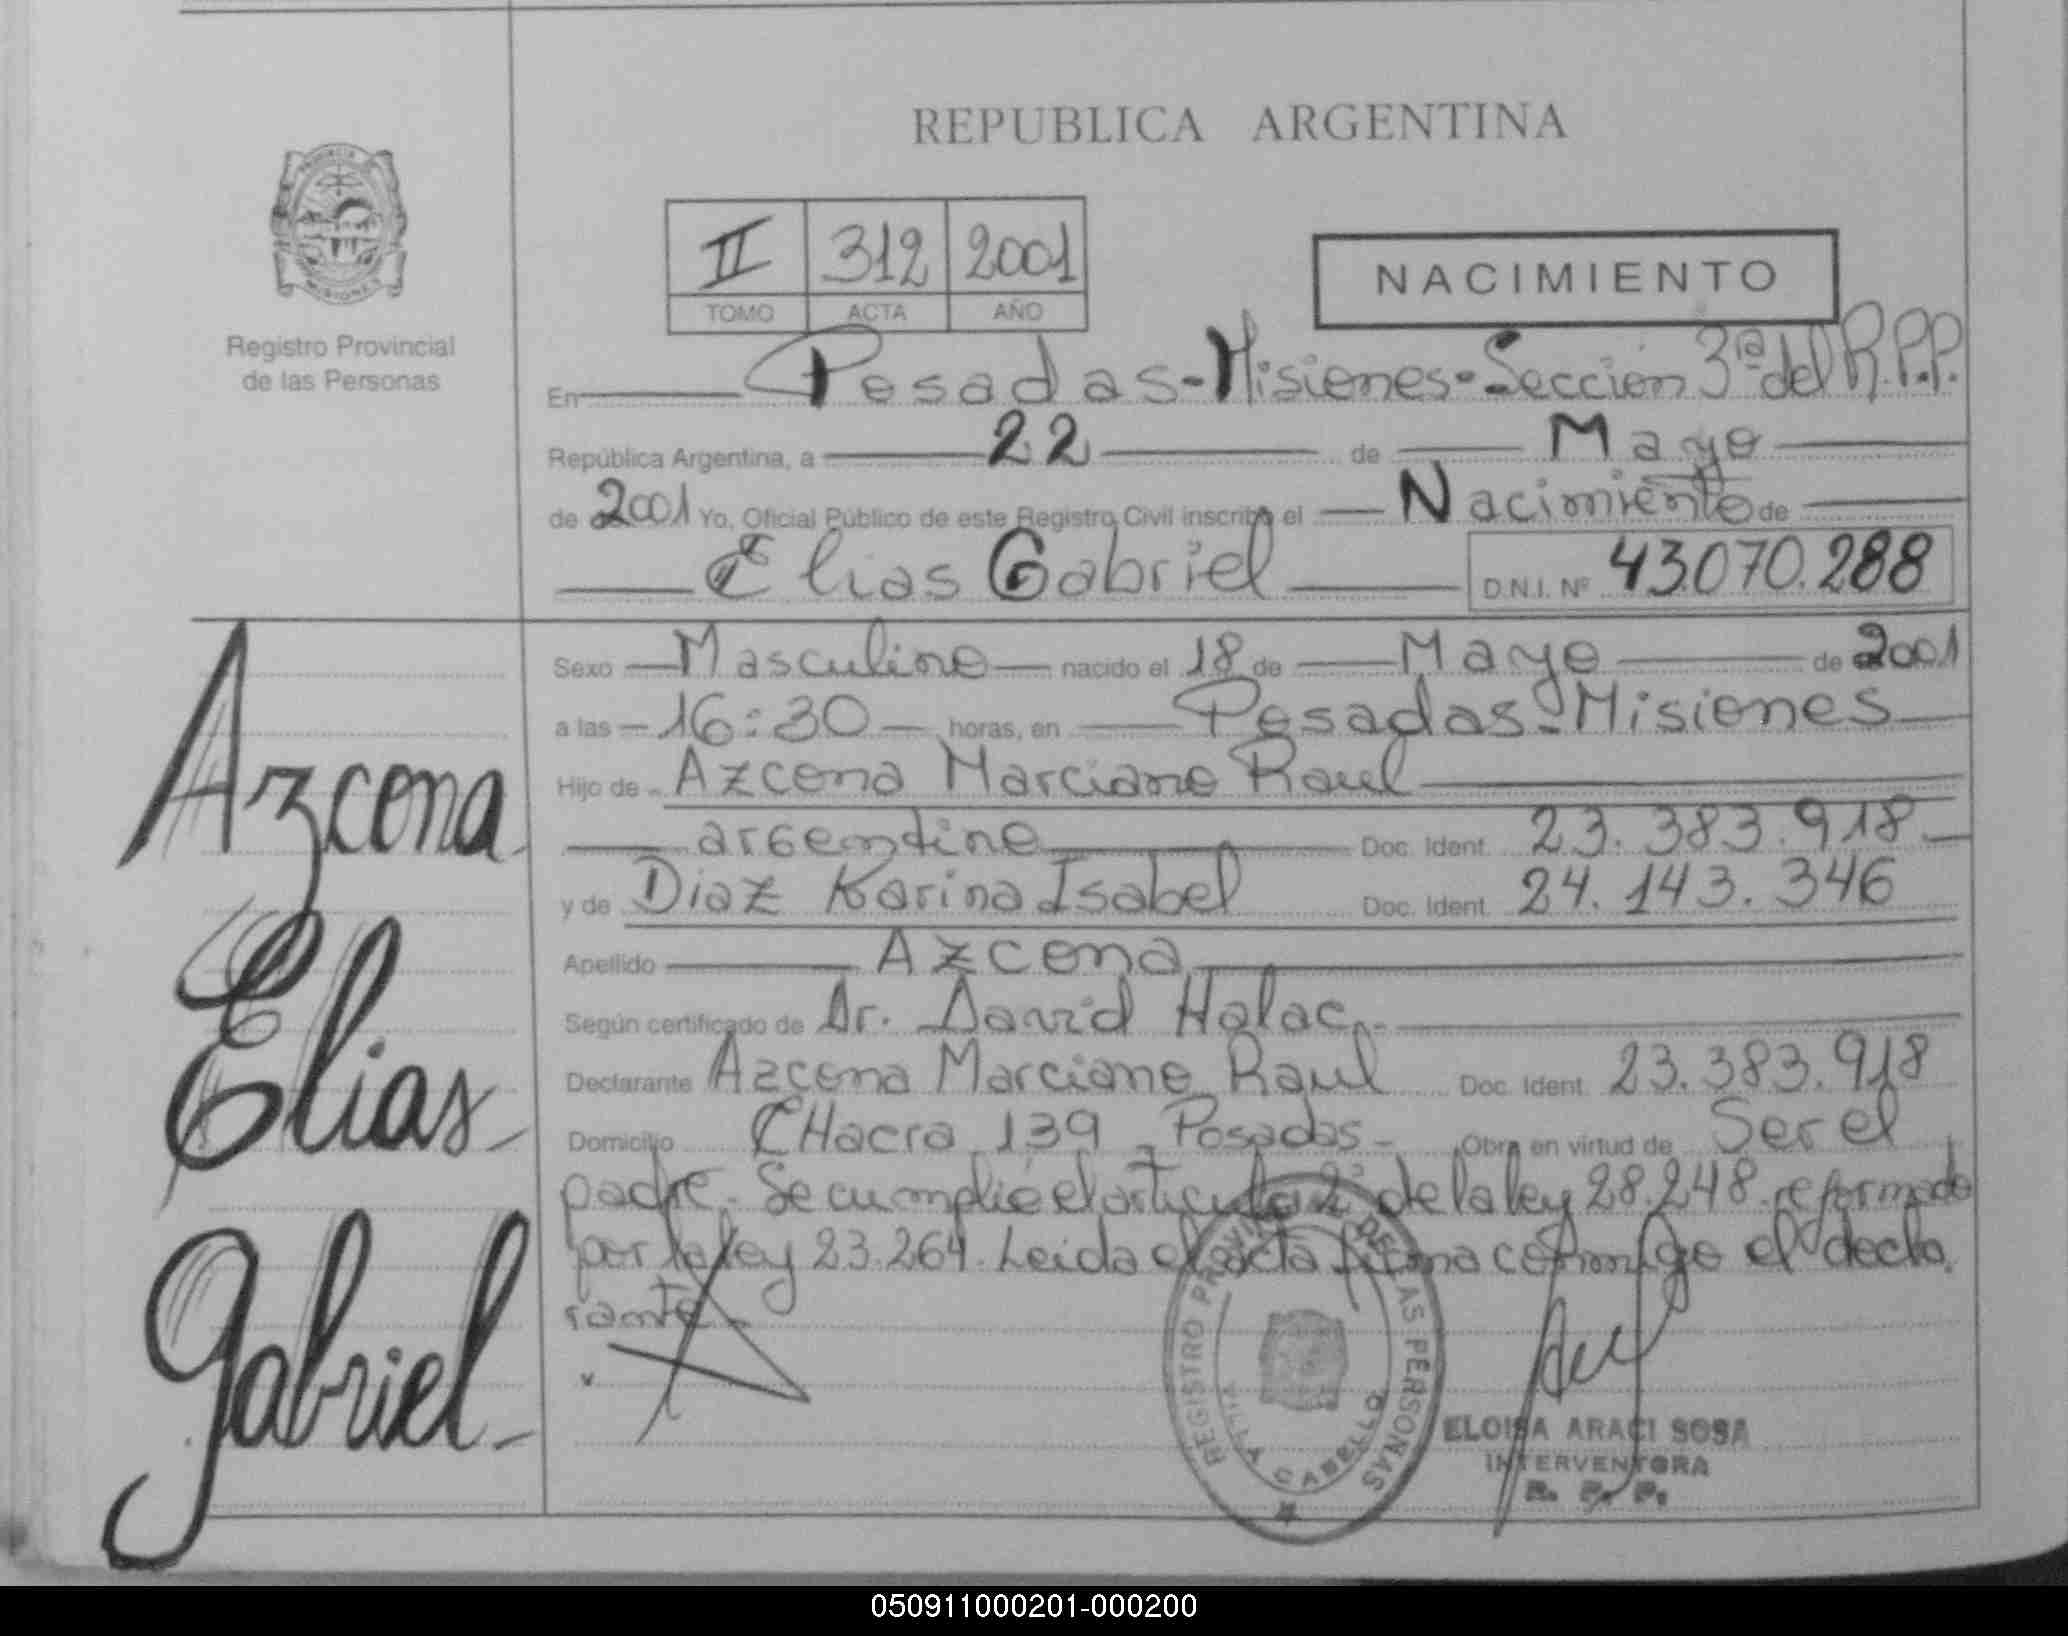 REPUBLICA ARGENTINA
PROVINCIA
MISIONES
Registro Provincial
de las Personas
II 312 2001
TOMO ACTA AÑO
NACIMIENTO
En Posadas-Misiones-Sección 3ª del R.P.P.
República Argentina, a 22 de Mayo
de 2001 Yo, Oficial Público de este Registro Civil inscribo el Nacimiento de
Elias Gabriel D.N.I. Nº 43.070.288
Sexo Masculino nacido el 18 de Mayo de 2001
a las 16:30 horas, en Posadas-Misiones
Hijo de Azcona Marciano Raul
argentino Doc. Ident. 23.383.918
y de Diaz Karina Isabel Doc. Ident. 24.143.346
Apellido Azcona
Según certificado de Dr. David Halac.-
Declarante Azcona Marciano Raul Doc. Ident. 23.383.918
Domicilio CHacra 139 - Posadas- Obra en virtud de Ser el
padre. Se cumplió el articulo 2º de la ley 28.248 reformado
por la ley 23.264. Leida el acta firma conmigo el decla
rante.-
Azcona
Elias-
Gabriel-
REGISTRO PROVINCIAL DE LAS PERSONAS
VILLA CABELLO
ELOISA ARACI SOSA
INTERVENTORA
R. P. P.
050911000201-000200